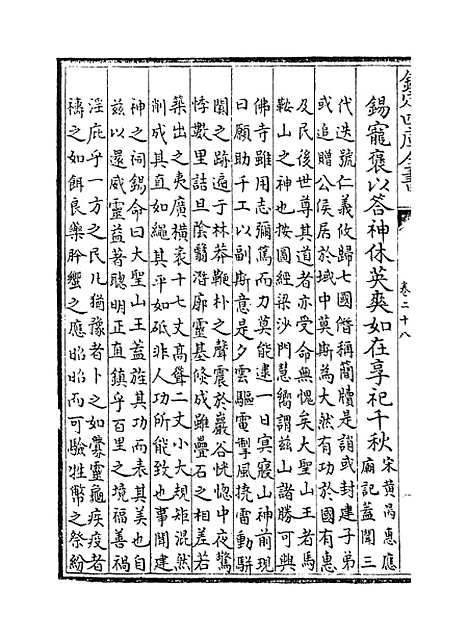 欽定四庫全書
卷二十八
錫寵褒以答神休英爽如在享祀千秋宋黃 惠應
廟記蓋聞三
代迭號仁義攸歸七國僭稱簡牘是誚或封建子弟
或追贈公侯居於域中莫斯為大然有功於國有惠
及民後世尊其道者亦受命無愧矣大聖山王者馬
鞍山之神也按圖經梁沙門慧嚮謂兹山諸勝可興
佛寺雖用志彌篤而力莫能逮一日冥寢山神前現
曰願助千工以副斯意是夕雲驅電掣風撓雷動駢
闐之跡遍于林莽鞭朴之聲震於巖谷恍惚中夜驚
悸數里詰旦陰翳 廓靈基倏成雖疊石之相差若
築出之夷廣横袤十七丈高聳二丈小大規矩混然
削成其直如繩其平如砥非人功所能致也事聞建
神之祠錫命曰大聖山王蓋旌其功而表其美也自
兹以還威靈益著聰明正直鎮乎百里之境福善禍
淫庇乎一方之民凡猶豫者卜之如 靈龜疾疫者
禱之如餌良藥肸蠁之應昭昭而可驗牲幣之祭紛